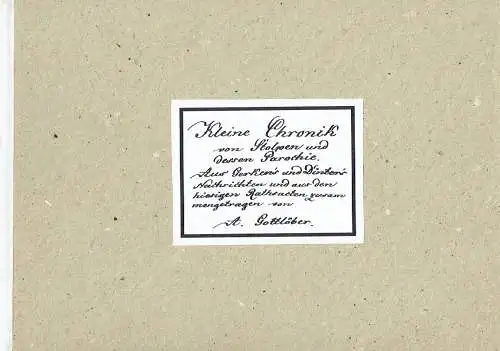 Kleine Chronik
von Stolpen und
dessen Parochie.
Aus Gerken's und Dinter's
Nachrichten und aus den
hiesigen Rathsacten zusam
mengetragen von
A. Gottlöber.